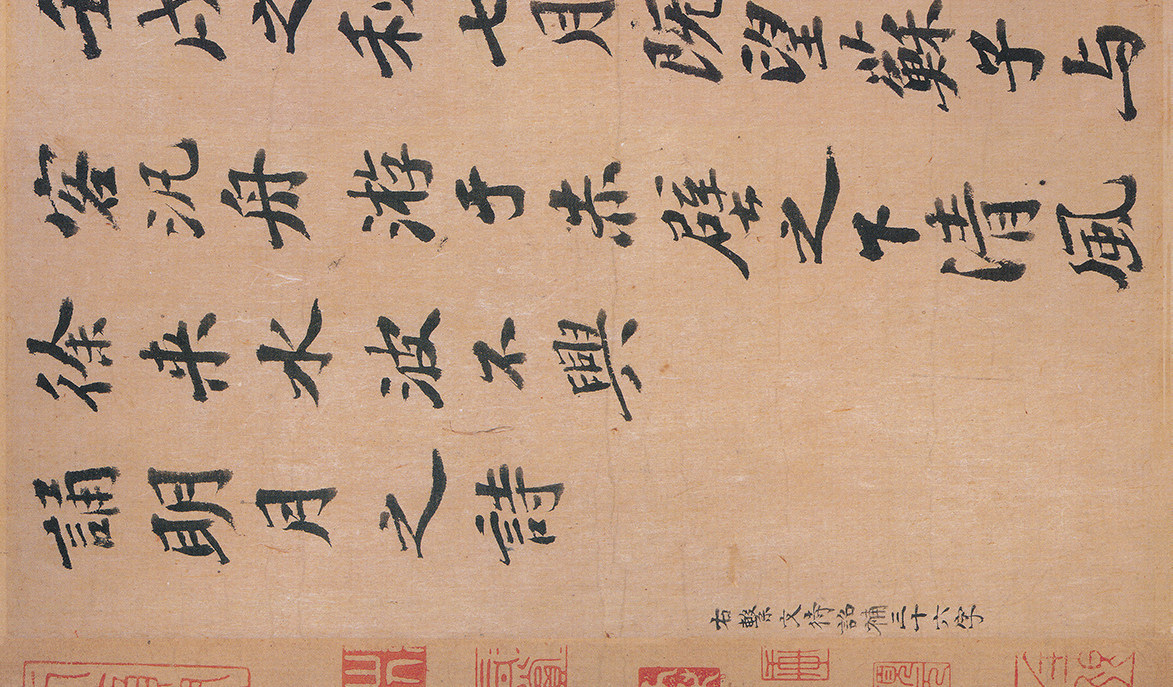 壬戌之秋七月既望蘇子与
客泛舟游于赤壁之下清風
徐来水波不興
誦明月之詩
右繫文待詔補三十六字